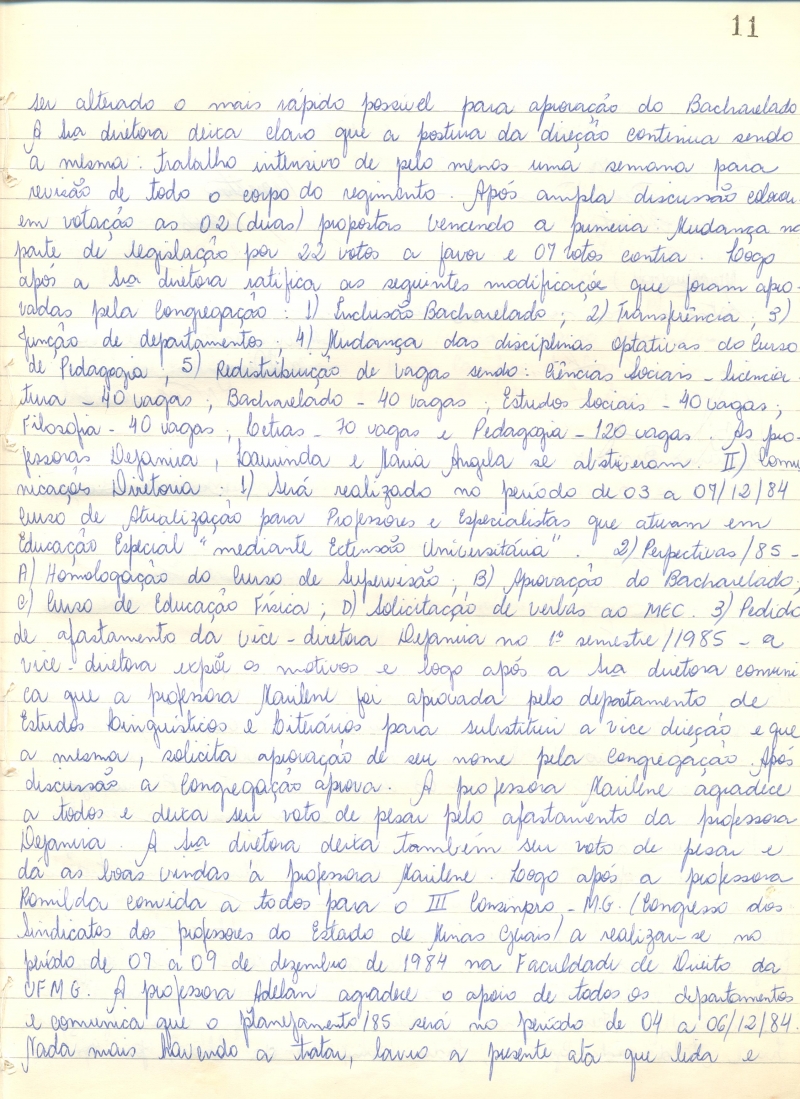 11
ser alterado o mais rápido possível para aprovação do Bacharelado
A Sra diretora deixa claro que a postura da direção continua sendo
a mesma: trabalho intensivo de pelo menos uma semana para
revisão de todo o corpo do regimento. Após ampla discussão colocou
em votação as 02 (duas) propostas vencendo a primeira: Mudança na
parte de legislação por 22 votos a favor e 07 votos contra. Logo
após a Sra diretora ratifica as seguintes modificações que foram apro-
vadas pela Congregação: 1) Inclusão Bacharelado; 2) Transferência; 3)
Junção de departamentos; 4) Mudança das disciplinas optativas do Curso
de Pedagogia; 5) Redistribuição de vagas sendo: Ciências Sociais - licencia
tura - 40 vagas; Bacharelado - 40 vagas; Estudos Sociais - 40 vagas;
Filosofia - 40 vagas; Letras - 70 vagas e Pedagogia - 120 vagas. As pro-
fessoras Dejanira, Lourinda e Maria Angela se abstiveram. II) Comu
nicações Diretoria: 1) Será realizado no período de 03 a 07/12/84
Curso de Atualização para Professores e Especialistas que atuam em
Educação Especial "mediante Extensão Universitária". 2) Perpectivas/85 -
A) Homologação do Curso de Supervisão; B) Aprovação do Bacharelado;
C) Curso de Educação Física; D) Solicitação de verbas ao MEC. 3) Pedido
de afastamento da vice-diretora Dejanira no 1º semestre/1985 - a
vice-diretora expõe os motivos e logo após a Sra diretora comuni
ca que a professora Marilene foi aprovada pelo departamento de
Estudos Linguísticos e Literários para substituir a vice direção e que
a mesma, solicita aprovação de seu nome pela Congregação. Após
discussão a Congregação aprova. A professora Marilene agradece
a todos e deixa seu voto de pesar pelo afastamento da professora
Dejanira. A Sra diretora deixa também seu voto de pesar e
dá as boas vindas à professora Marilene. Logo após a professora
Romilda convida a todos para o III Consinpro - M.G. (Congresso dos
Sindicatos dos professores do Estado de Minas Gerais) a realizar-se no
período de 07 a 09 de dezembro de 1984 na Faculdade de Direito da
UFMG. A professora Adelan agradece o apoio de todos os departamentos
e comunica que o planejamento/85 será no período de 04 a 06/12/84.
Nada mais havendo a tratar, lavro a presente ata que lida e